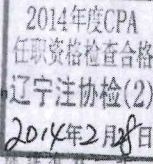 2014年度CPA
任职资格检查合格
辽宁注协检(2)
2014年2月28日